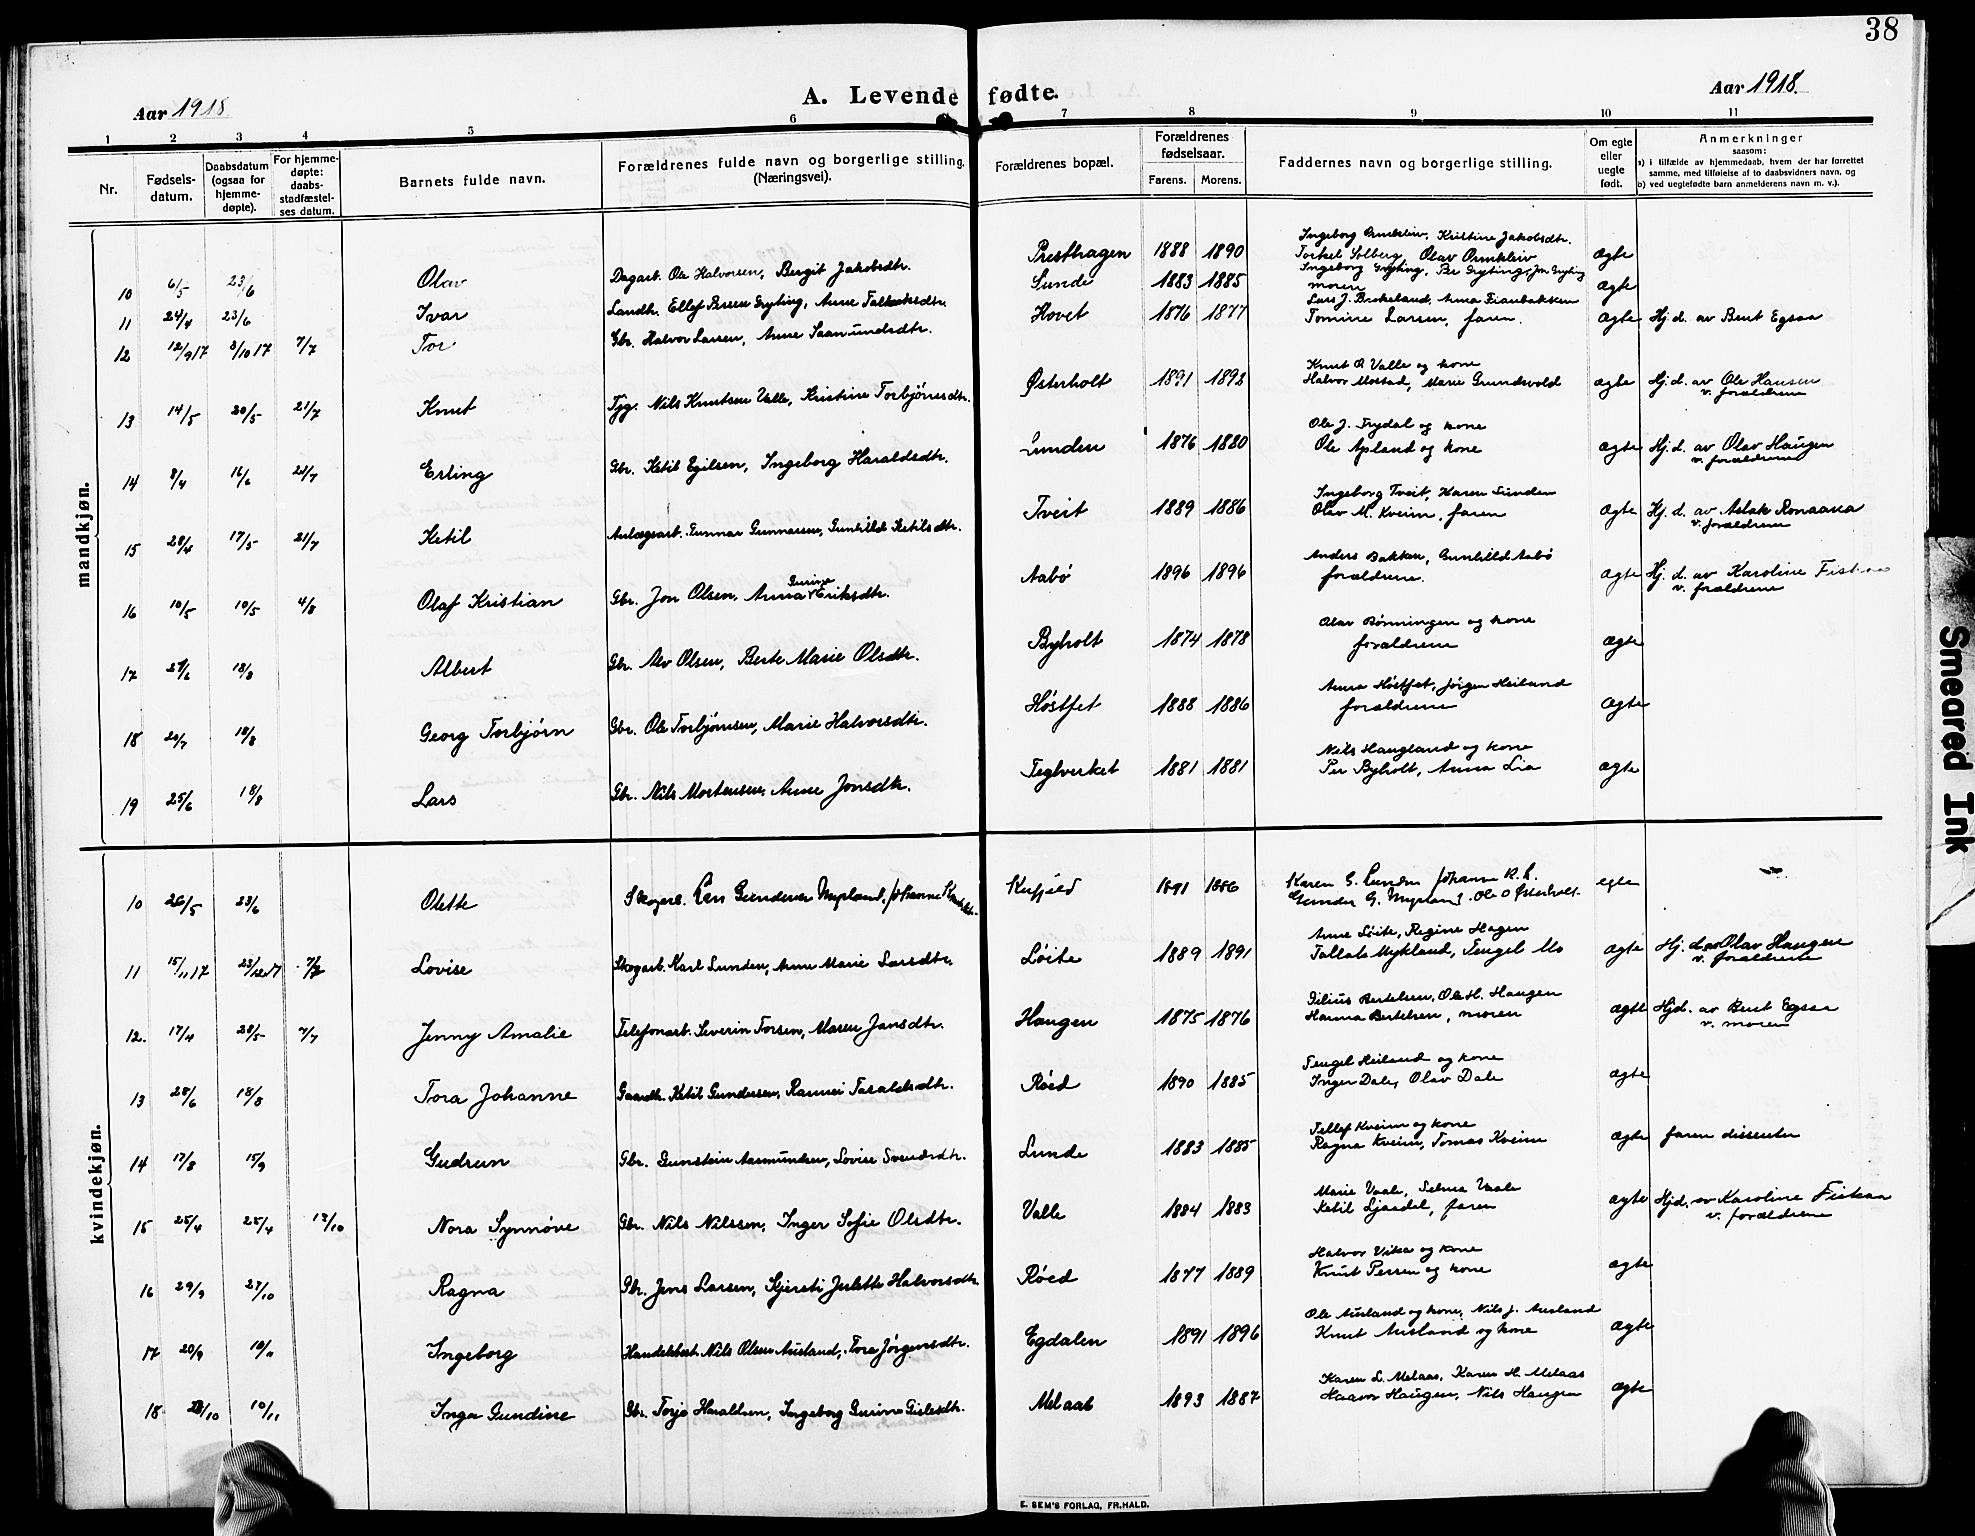 38
Aar 1918
A. Levende fødte.
Aar 1918.
1 2 3 4 5 6 7 8 9 10 11
Nr.
Fødsels-
datum.
Daabsdatum
(ogsaa for
hjemme-
døpte).
For hjemme-
døpte:
daabs-
stadfæstel-
ses datum.
Barnets fulde navn.
Forældrenes fulde navn og borgerlige stilling.
(Næringsvei).
Forældrenes bopæl.
Forældrenes
fødselsaar.
Farens. Morens.
Faddernes navn og borgerlige stilling.
Om egte
eller
uegte
født.
Anmerkninger
saasom:
a) i tilfælde av hjemmedaab, hvem der har forrettet
samme, med tilføielse af to daabsvidners navn, og
b) ved uegtefødte barn anmelderens navn m. v.).
mandkjøn.
Ingeborg Ormkleiv, Kristine Jakobsdtr.
10 6/5 23/6 Olav Dagarb. Ole Halvorsen, Bergit Jakobsdtr. Presthagen 1888 1890 Torkel Solberg Olav Ormkleiv ægte
Ingeborg Gryting, Per Gryting, Jon Gryting
11 24/4 23/6 Ivar Landh. Ellef Persen Gryting, Anne Tallaksdtr. Sunde 1883 1885 moren ægte
Lars J. Brokeland, Anna
12 12/9 17 3/10 17 7/7 Tor Gbr. Halvor Larsen, Anne Saamundsdtr. Hovet 1876 1877 Tomine Larsen, faren. ægte Hj. d. av Bent Egsaa
Knut O. Valle og kone
13 14/5 20/5 21/7 Knut Tjg. Nils Knutsen Valle, Kristine Torbjørnsdtr. Østerholt 1891 1892 Halvor Mostad, Marie Grundsvold ægte Hj. d. av Ole Hansen
v. forældrene
Ole J. Frydal og kone
14 8/4 16/6 21/7 Erling Gbr. Ketil Egilsen, Ingeborg Haraldsdtr. Lunden 1876 1880 Ole Apsland og kone ægte Hj. d. av Olav Haugen
v. forældrene
Ingeborg Tveit, Karen Lunden
15 28/4 17/5 21/7 Ketil Anlægsarb. Gunnar Gunnarsen, Gunhilde Ketilsdtr. Tveit 1889 1886 Olav M. Kveim, faren ægte Hj. d. av Aslak Ronaana
v. forældrene
Anders Bakken, Gunhild Aabø
16 10/5 10/5 4/8 Olaf Kristian Gbr. Jon Olsen, Anna Gurine Eriksdtr. Aabø 1896 1896 forældrene. ægte Hj. d. av Karoline
v. forældrene
Olav Bønningen og kone
17 27/6 18/8 Albert Gbr. Alv Olsen, Berte Marie Olsdtr. Byholt 1874 1878 forældrene ægte
Anna Høstfet, Jørgen Heiland
18 20/7 18/8 Georg Torbjørn Gbr. Ole Torbjørnsen, Marie Halvorsdtr. Høstfet 1888 1886 forældrene ægte
Nils Haugland og kone
19 25/6 18/8 Lars Gbr. Nils Mortensen, Anne Jonsdtr. Teglverket 1881 1881 Per Byholt, Anna Lia ægte
kvindekjøn.
Karen G. Lunden Johanne K. L.
10 26/5 23/6 Olette Skogarb. Gundersen Mykland, Johanne 1891 1886 Gunder G. Mykland, Ole O Østerholt. egte
Anne Løite, Regine Hagen
11 15/11 17 23/12 17 7/7 Lovise Skogarb. Karl Lunden, Anne Marie Larsdtr. Løite 1889 1891 Tallak Mykland, Tengel Mo ægte Hj. d. av Olav Haugen
v. forældrene
Bertelsen, Ole H. Haugen
12. 17/4 28/5 7/7 Jenny Amalie Telefonarb. Severin Torsen, Maren Jansdtr. Haugen 1875 1876 Hanna Bertelsen, moren ægte Hjd. av Bent Egsaa
v. moren
Tengel Heiland og kone
13 28/6 18/8 Tora Johanne Gaardb. Ketil Gundersen, Rannei Taraldsdtr. Røed 1890 1885 Inger Dale, Olav Dale ægte
Tellef Kveim og kone
14 17/8 15/9 Gudrun Gbr. Gunstein Aasmundsen, Lovise Svendsdtr. Lunde 1883 1885 Ragna Kveim, Tomas Kveim ægte faren dissenter
Marie Vaale, Selma Vaale
15 25/4 25/4 13/10 Nora Synnøve Gbr. Nils Nilssen, Inger Sofie Olsdtr. Valle 1884 1883 Ketil Ljosdal, faren ægte Hjd. av Karoline Fiskaa
v. forældrene
Halvor Vika og kone
16 29/9 27/10 Ragna Gbr. Jens Larsen, Kjersti Julette Halvorsdtr. Røed 1877 1889 Knut Persen og kone ægte
Ole Ausland og kone, Nils J. Ausland
17 20/9 10/11 Ingeborg Handelsbest. Nils Olsen Ausland, Tora Jørgensdtr. Egdalen 1891 1896 Knut Ausland og kone ægte
Karen L. Melaas, Karen H. Melaas
18 10/11 Inga Gundine Gbr. Terje Haraldsen, Ingeborg Gurine Gislesdtr. Melaas 1893 1887 Haavor Haugen, Nils Haugen ægte
E. SEM'S FORLAG, FR.HALD.
Smeared Ink